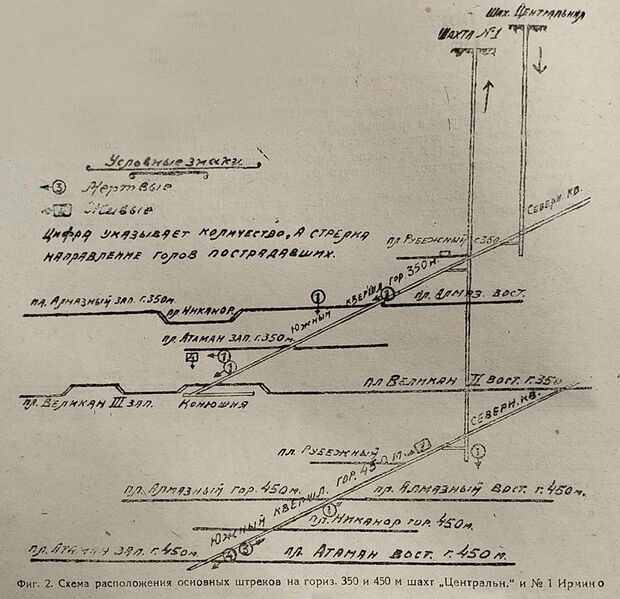 Шах. Центральная
Шахта №1
Условные знаки
③ Мертвые
Живые
Цифра указывает количество, а стрелка
направление голов пострадавших.
Северн. кв.
пл Рубежный г.350
Южный квершл гор. 350 м.
пл. Алмазный зап. г.350м.
пл. Никанор
пл. Алмаз. вост.
пл. Атаман зап. г.350м.
пл. Великан III зап.
Конюшня
пл Великан II вост. г. 350
Северн. кв.
пл. Рубежный
Южный квершл. гор. 450 м
пл. Алмазный гор. 450м.
пл. Алмазный вост. г. 450м.
пл. Никанор гор. 450м.
пл. Атаман зап. г. 450м.
пл. Атаман вост. г. 450м.
Фиг. 2. Схема расположения основных штреков на гориз. 350 и 450 м шахт „Центральн.“ и № 1 Ирмино